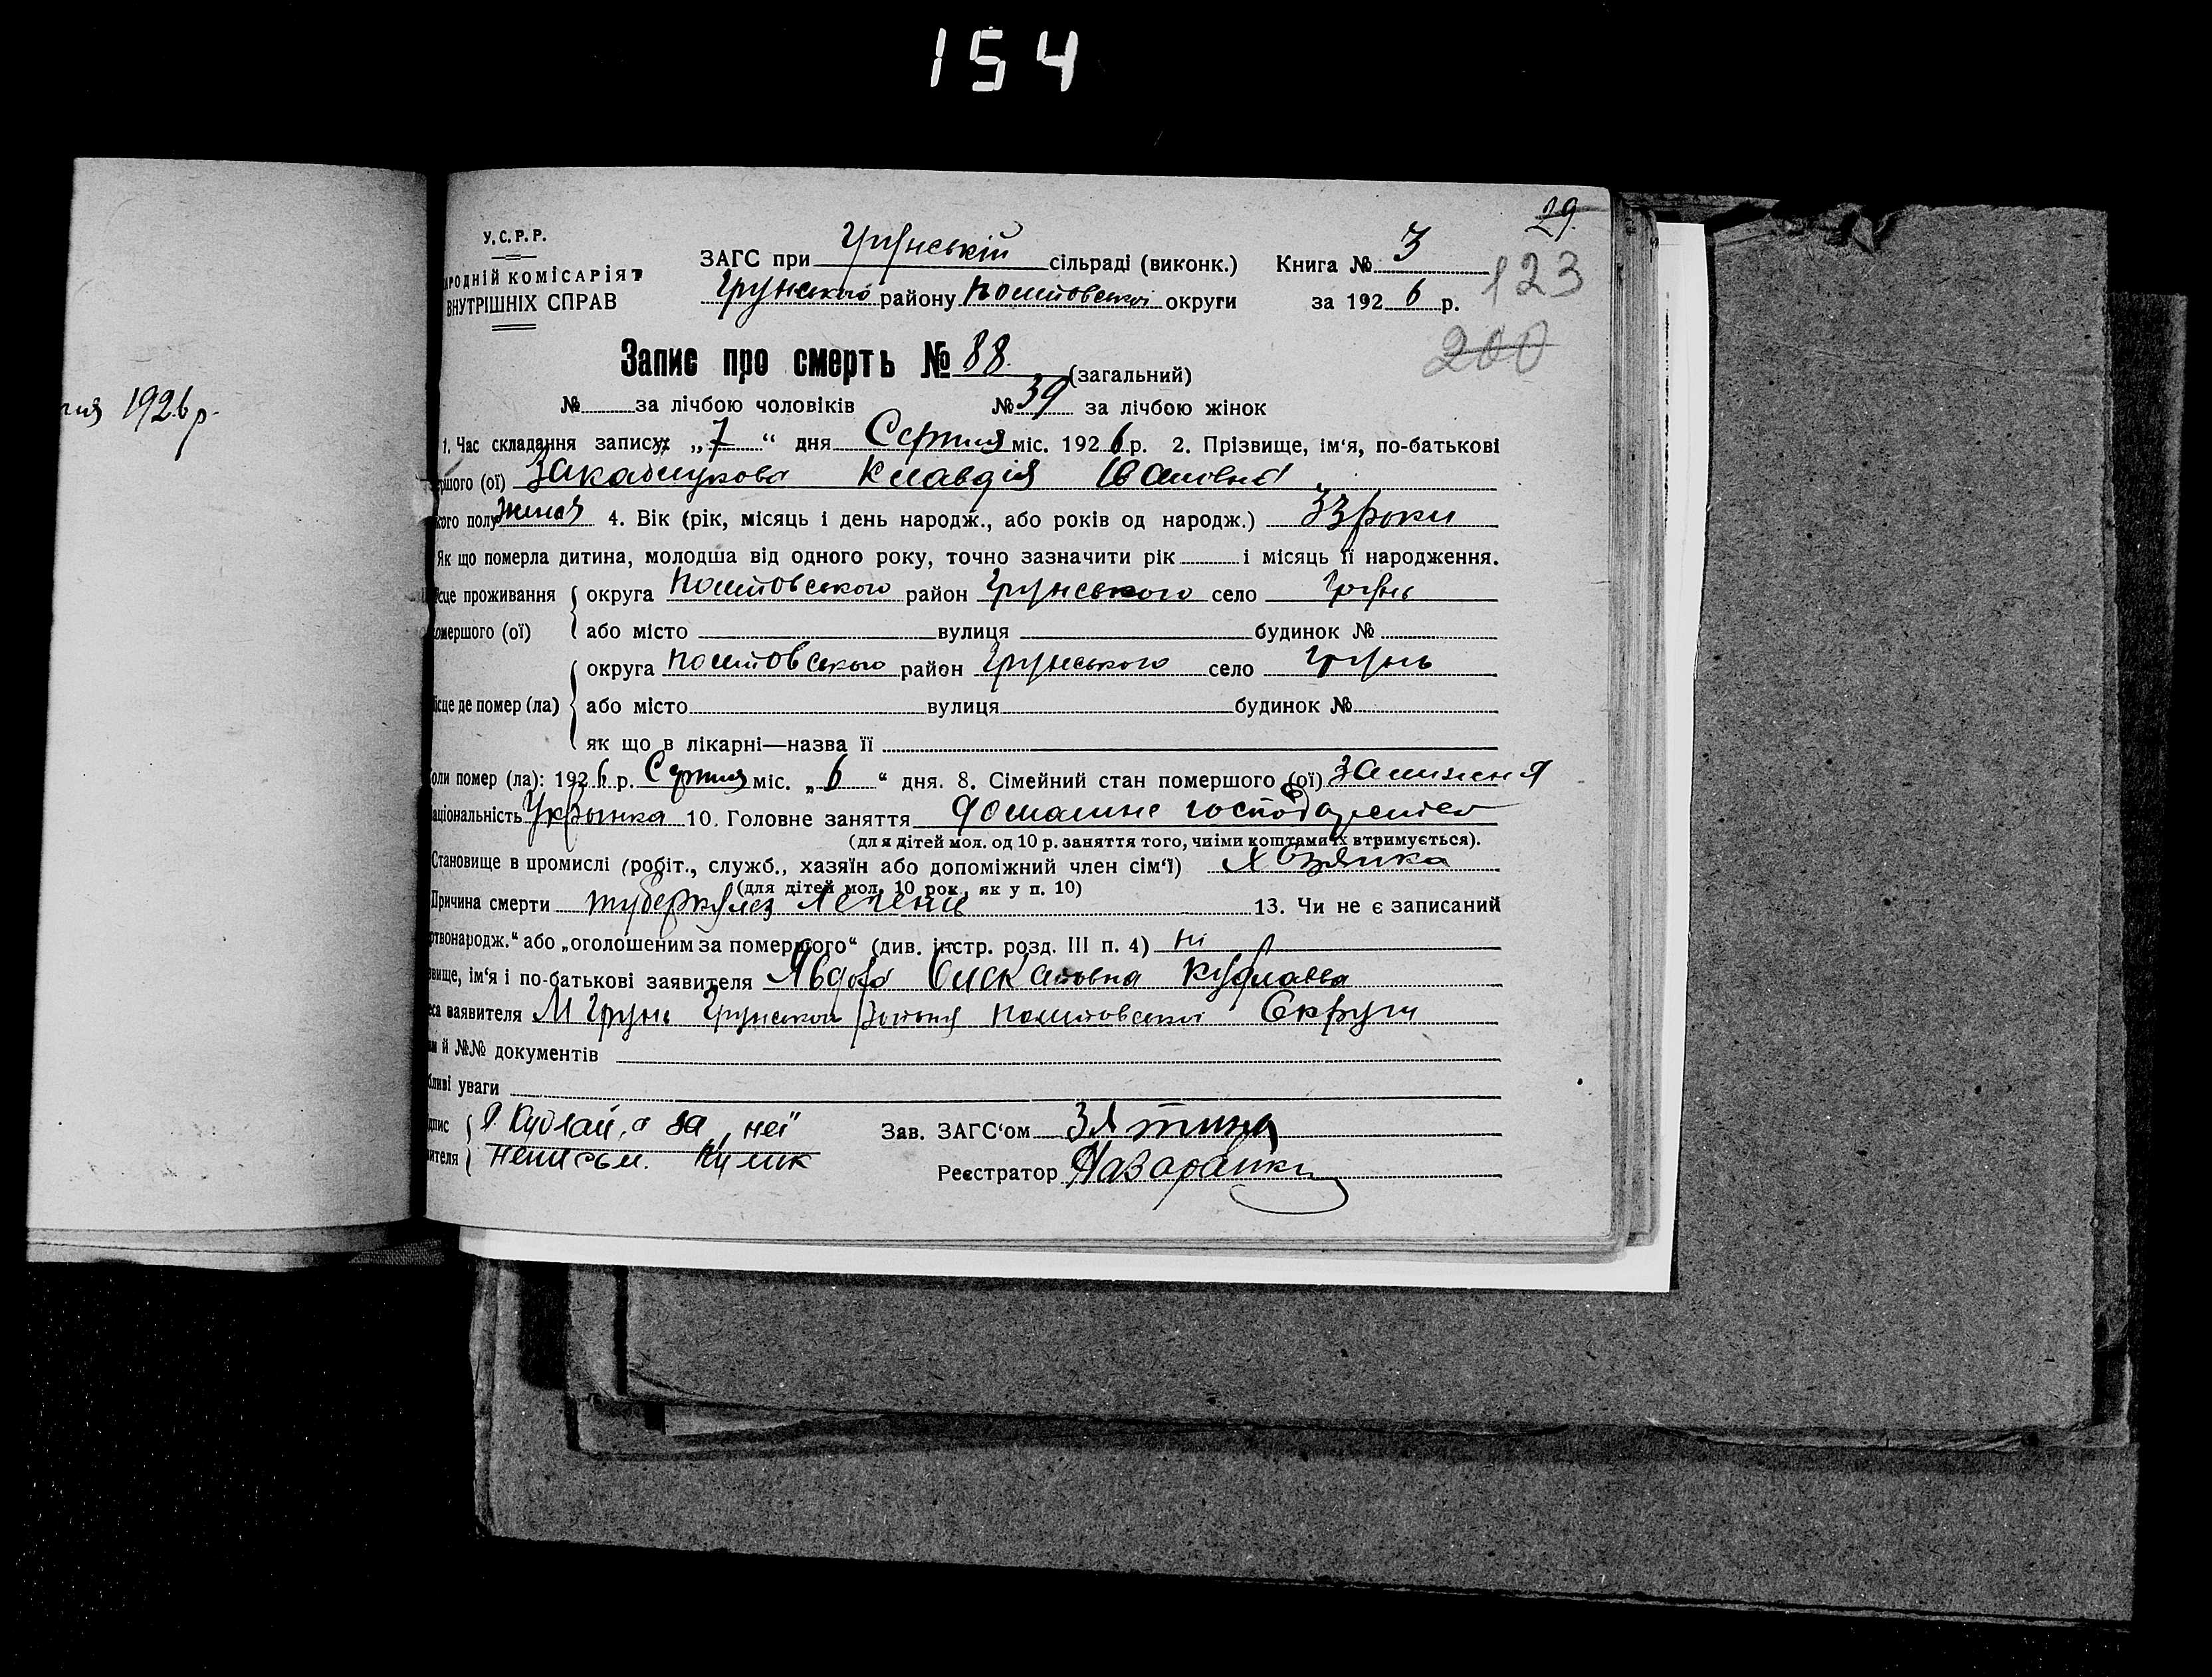 154
29.
У.С.Р.Р.
РОДНІЙ КОМІСАРІЯТ
ВНУТРІШНІХ СПРАВ
ЗАГС при Грунській сільраді (виконк.) Книга № 3
Грунського району округи за 1926 р.
123
200
Запис про смерть № 88. (загальний)
№ за лічбою чоловіків № 39 за лічбою жінок
1926 р.
1. Час складання запису: „7“ дня Серпня міс. 1926 р. 2. Прізвище, ім‘я, по-батькові
ршого (ої) Закаблукова Клавдія Іванівна
кого полу 4. Вік (рік, місяць і день народж., або років од народж.) 33 роки
Як що померла дитина, молодша від одного року, точно зазначити рік і місяць її народження.
сце проживання округа район Грунського село Грунь
омершого (ої) або місто вулиця будинок №
округа район Грунського село Грунь
ісце де помер (ла) або місто вулиця будинок №
як що в лікарні—назва її
оли помер (ла): 1926 р. Серпня міс. „6“ дня. 8. Сімейний стан помершого (ої) замижня
аціональність Укрынка 10. Головне заняття домашнє
(для дітей мол. од 10 р. заняття того, чиїми коштами їх втримується).
Становище в промислі (робіт., служб., хазяїн або допоміжний член сім‘ї) хозяйка
(для дітей мол. 10 рок., як у п. 10)
Причина смерти туберкулез легень 13. Чи не є записаний
ртвонародж.“ або „оголошеним за помершого“ (див. інстр. розд. III п. 4) ні
звище, ім‘я і по-батькові заявителя
еса заявителя М Грунь Грунської Округи
й №№ документів
бливі уваги
дпис Я. Кудлай, а за неї
ителя неписьм. Кулик
Зав. ЗАГС‘ом
Реєстратор